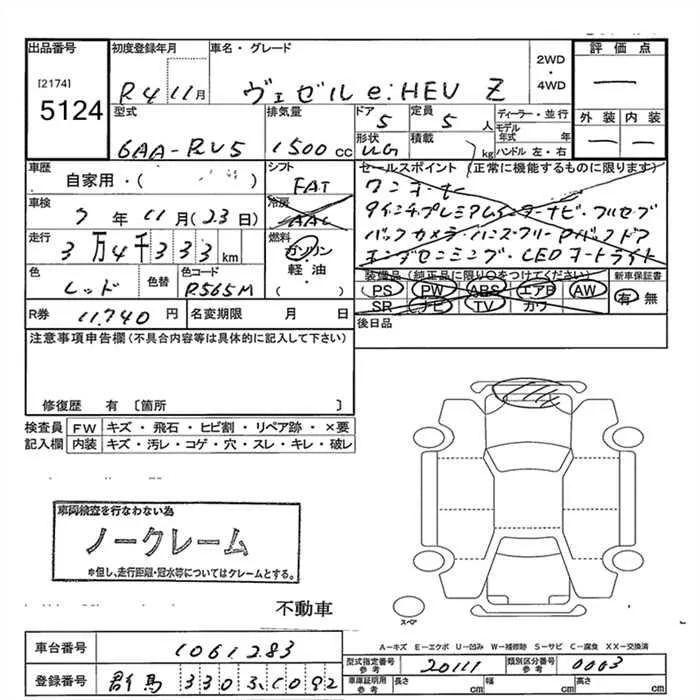 出品番号 初度登録年月 車名・グレード 評価点
[2174] 5124 R4 11月 ヴェゼル e:HEV Z 2WD・4WD ―
型式 排気量 ドア 定員 ディーラー・並行 外装 内装
6AA-RV5 1500cc 5 5人 モデル年式 年 ― ―
形状 積載 ハンドル 左・右
UG kg
車歴 シフト セールスポイント (正常に機能するものに限ります)
自家用・( ) FAT ワンオーナー
車検 冷房
7年11月(23日) AAC
フルセグ
走行 燃料 バックカメラ・ハンズフリーPバックドア
3万4千333km ガソリン・軽油・( )
LEDオートライト
色 色替 色コード 装備品(純正品に限り○をつけてください) 新車保証書
レッド R565M PS PW ABS エアB AW 有 無
SR ナビ TV カワ
R券 11,740円 名変期限 月 日 後日品
注意事項申告欄(不具合内容等は具体的に記入して下さい)
修復歴 有〔箇所 〕
検査員 FW キズ・飛石・ヒビ割・リペア跡・×要
記入欄 内装 キズ・汚レ・コゲ・穴・スレ・キレ・破レ
車両検査を行なわない為
ノークレーム
*但し、走行距離・冠水等についてはクレームとする。
不動車
スペア
A-キズ E-エクボ U-凹み W-補修跡 S-サビ C-腐食 XX-交換済
車台番号 1061283 型式指定番号 参考 20111 類別区分番号 参考 0063
登録番号 群馬 330 そ 6092 車庫証明用 参考 長さ cm 幅 cm 高さ cm